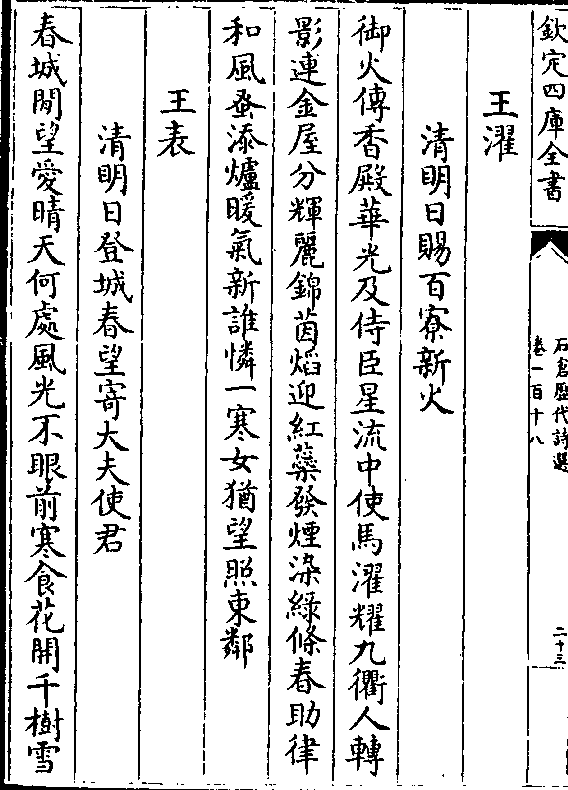 欽定四庫全書
石倉歷代詩選
卷一百十八
二十三
王濯
清明日賜百寮新火
御火傳香殿華光及侍臣星流中使馬濯耀九衢人轉
影連金屋分輝麗錦茵焰迎紅蘂發煙染綠條春助律
和風蚤添爐暖氣新誰憐一寒女猶望照東鄰
王表
清明日登城春望寄大夫使君
春城閒望愛晴天何處風光不眼前寒食花開千樹雪